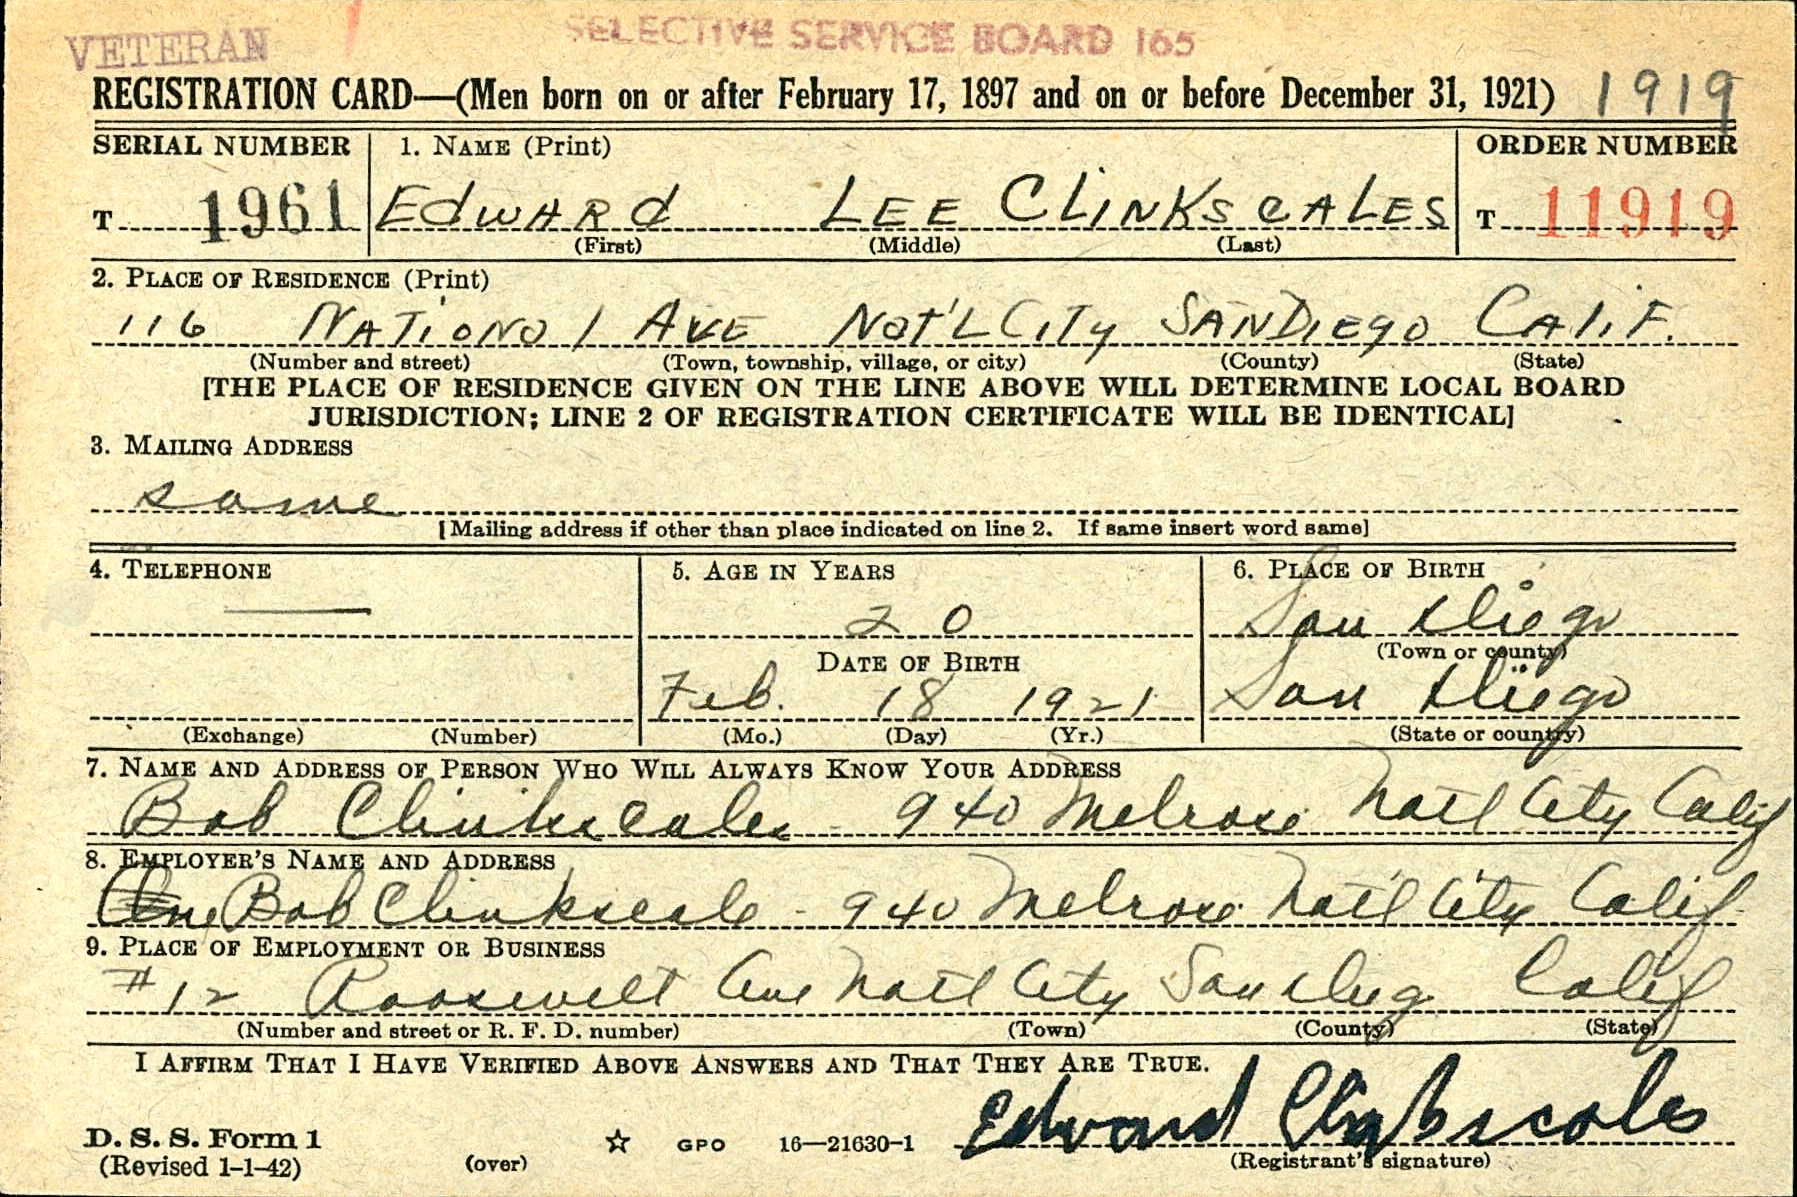 VETERAN
SELECTIVE SERVICE BOARD 165
REGISTRATION CARD—(Men born on or after February 17, 1897 and on or before December 31, 1921) 1919
SERIAL NUMBER 1. NAME (Print) ORDER NUMBER
T 1961 EdwARd LEE CLiNKScALES T 11919
(First) (Middle) (Last)
2. PLACE OF RESIDENCE (Print)
116 NATioNal AVE NAT'L CiTy SANDiEgo CALiF.
(Number and street) (Town, township, village, or city) (County) (State)
[THE PLACE OF RESIDENCE GIVEN ON THE LINE ABOVE WILL DETERMINE LOCAL BOARD
JURISDICTION; LINE 2 OF REGISTRATION CERTIFICATE WILL BE IDENTICAL]
3. MAILING ADDRESS
same
[Mailing address if other than place indicated on line 2. If same insert word same]
4. TELEPHONE 5. AGE IN YEARS 6. PLACE OF BIRTH
— 20 San Diego
DATE OF BIRTH (Town or county)
Feb. 18 1921 San Diego
(Exchange) (Number) (Mo.) (Day) (Yr.) (State or country)
7. NAME AND ADDRESS OF PERSON WHO WILL ALWAYS KNOW YOUR ADDRESS
Bob Clinkscales - 940 Melrose Natl City Calif
8. EMPLOYER'S NAME AND ADDRESS
Bob Clinkscale - 940 Melrose Nat'l City Calif
9. PLACE OF EMPLOYMENT OR BUSINESS
#12 Roosevelt Ave Natl City San Dieg Calif
(Number and street or R. F. D. number) (Town) (County) (State)
I AFFIRM THAT I HAVE VERIFIED ABOVE ANSWERS AND THAT THEY ARE TRUE.
Edward Clinkscales
D. S. S. Form 1 ☆ GPO 16—21630-1
(Revised 1-1-42) (over) (Registrant's signature)